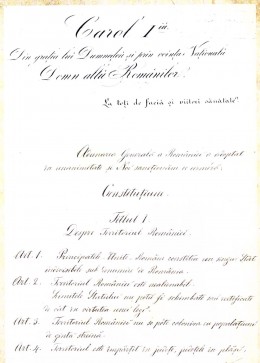 Carol I iu
Din gratia lui Dumnedeu și prin voința Națională
Domn altu Românilor.
La toți de facia și viitori sănătate.
Adunarea Generală a României a adoptat
cu unanimitate și Noi sancționăm ce urmeză.
Constituțiune.
Titlul I.
Despre Teritoriul României.
Art. 1. Principatele Unite Române constitue un singur Stat
indivisibil sub denumire de România.
Art. 2. Teritoriul României este nealienabil.
Limitele Statului nu potu fi schimbate sau rectificate
de cât în virtutea unei legi.
Art. 3. Teritoriul României nu se póte colonisa cu populațiuni
de gintă streină.
Art. 4. Teritoriul este împărțit în județe, județele în plăși,